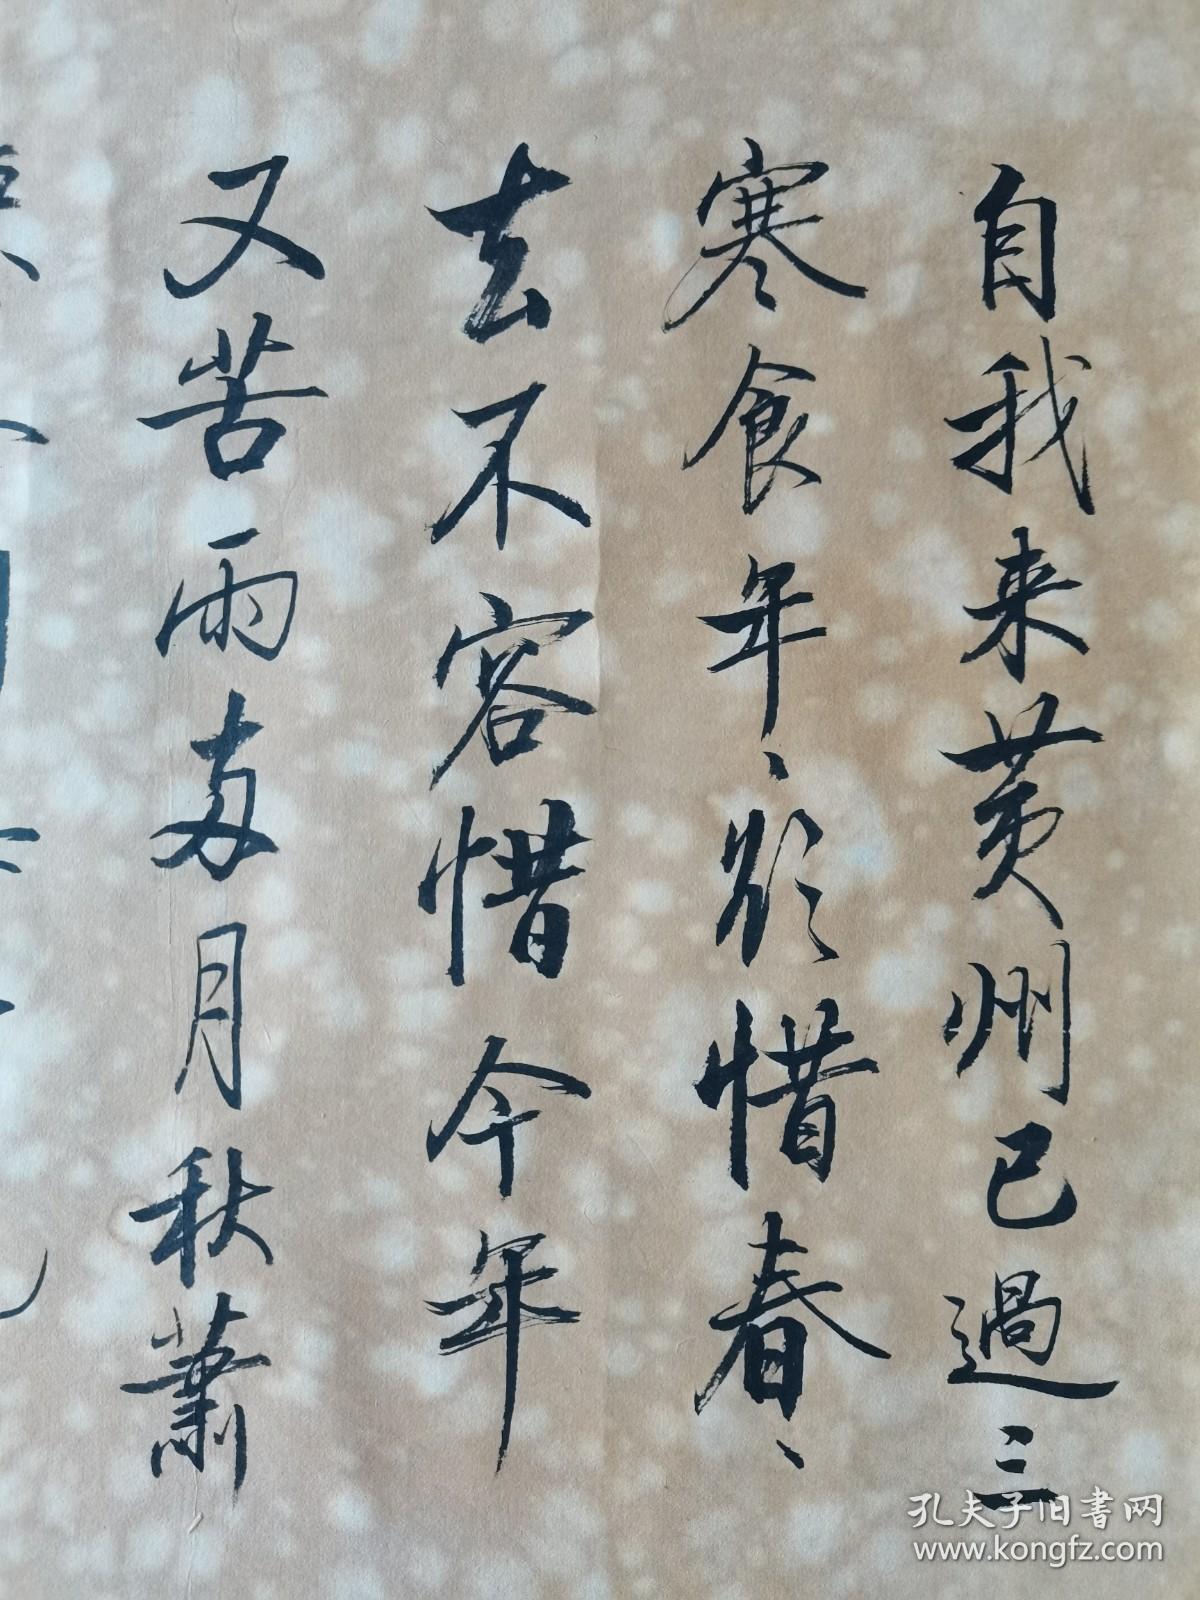 自我来黄州已過三
寒食年、欲惜春、
去不容惜今年
又苦雨两月秋蕭
孔夫子旧书网
www.kongfz.com